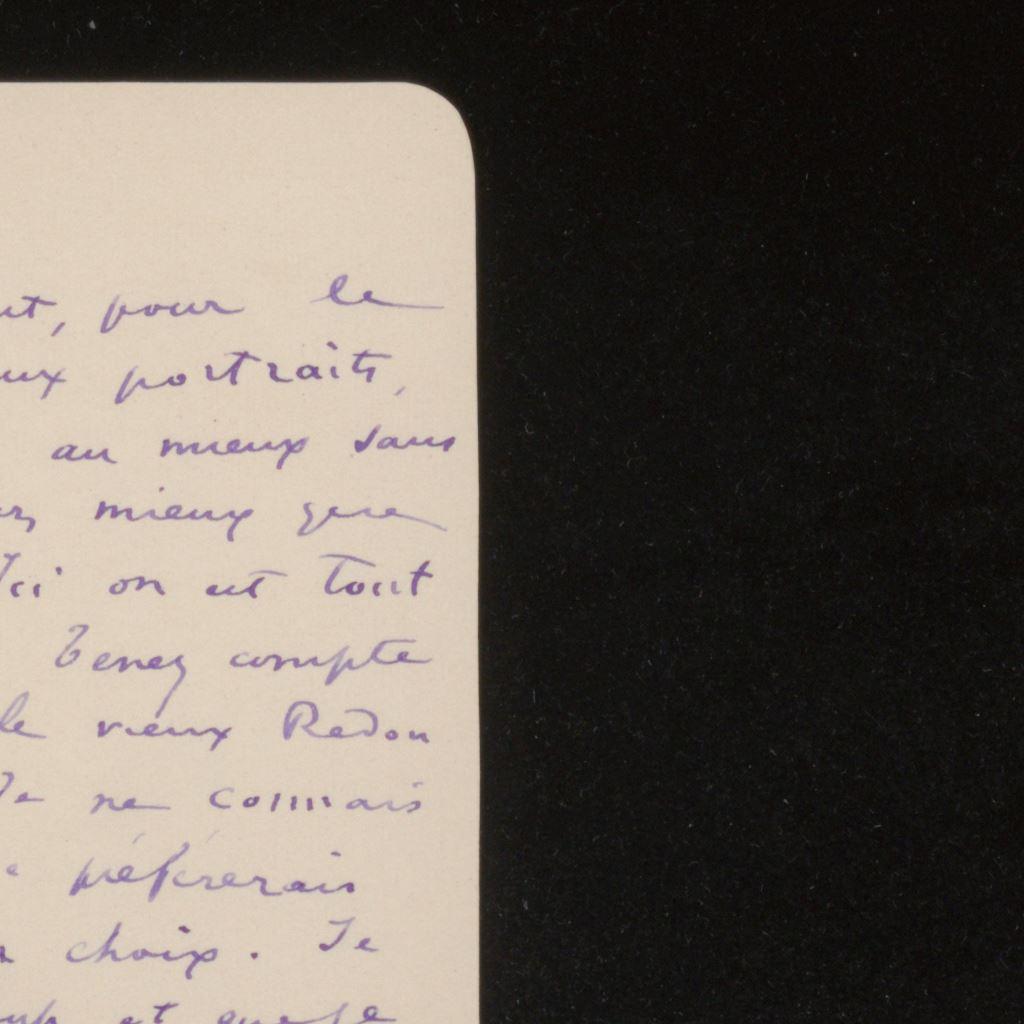 pour le
portraits,
au mieux sans
mieux que
Ici on est tout
Tenez compte
le vieux Redon
Je ne connais
préférerais
choix. Je
et